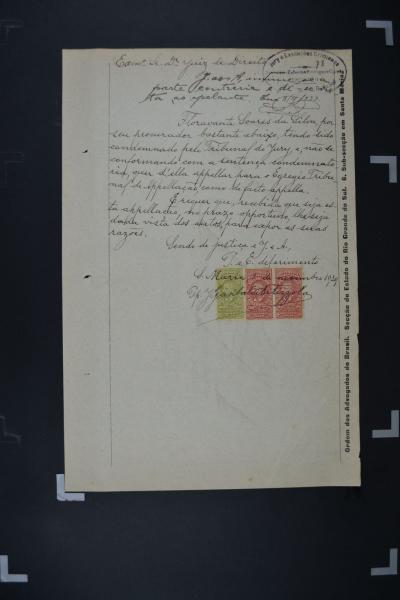 Exmo Sr. Dr. Juiz de Direito
parte contraria e dê
Jury e Execuções Criminaes
Fioravante Soares da Silva, por
seu procurador bastante abaixo, tendo sido
condemnado pelo Tribunal do Jury, e, não se
conformando com a sentença condemnato
ria, quer d'ella appellar para o Egregio Tribu
nal de Appellação, como de facto appella.
E requer que, recebida que seja es
ta appellação, no prazo opportuno, lhe seja
dada vista dos autos, para expor as suas
razões.
Sendo de justiça e J. e A.,
P. e E. deferimento
S. Maria, 8 de novembro 1937
Ordem dos Advogados do Brasil. Secção do Estado do Rio Grande do Sul. 6. Sub-secção em Santa Maria